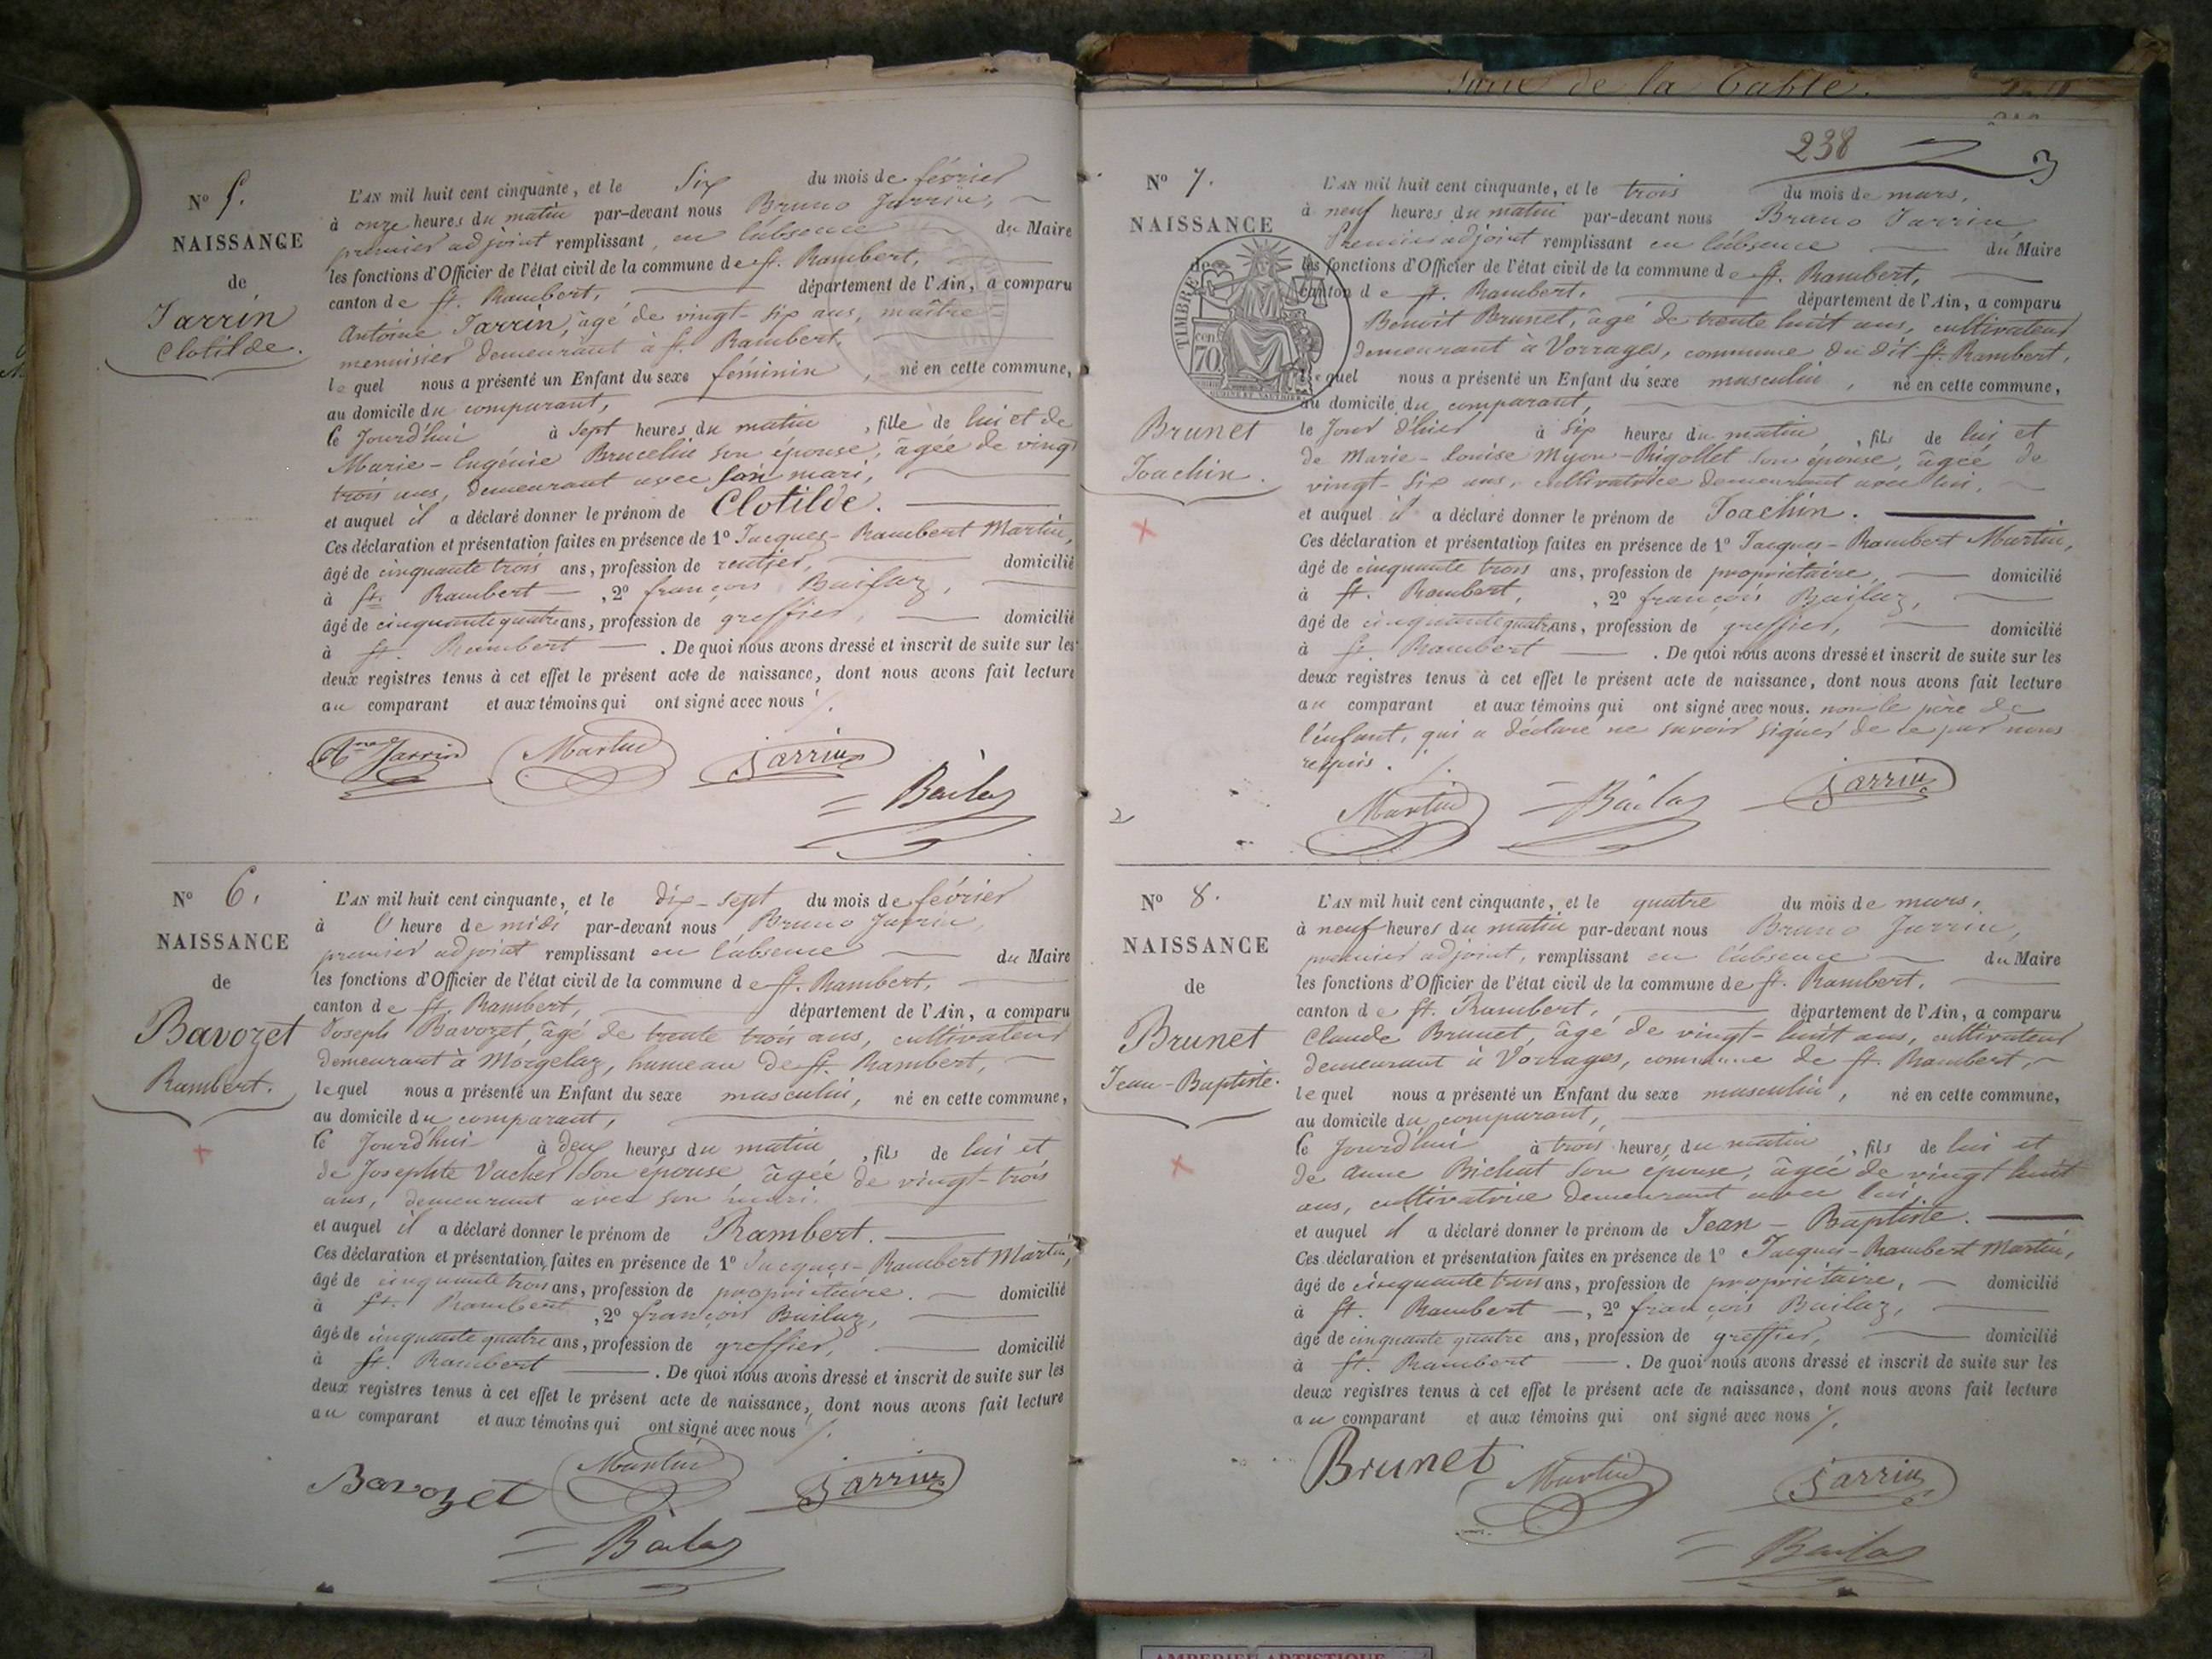 N° 5.
NAISSANCE
de
Jarrin
Clotilde.
L'AN mil huit cent cinquante, et le Six du mois de février
à onze heures du matin par-devant nous Bruno Jarrin,
premier adjoint remplissant en l'absence du Maire
les fonctions d'Officier de l'état civil de la commune de St. Rambert,
canton de St. Rambert, département de l'Ain, a comparu
Antoine Jarrin, âgé de vingt-six ans, maître
menuisier demeurant à St. Rambert,
lequel nous a présenté un Enfant du sexe féminin, né en cette commune,
au domicile du comparant,
le jourd'hui à sept heures du matin, fille de lui et de
Marie-Eugénie Brucelin son épouse, âgée de vingt
trois ans, demeurant avec son mari,
et auquel il a déclaré donner le prénom de Clotilde.
Ces déclaration et présentation faites en présence de 1° Jacques-Rambert Martin,
âgé de cinquante trois ans, profession de rentier, domicilié
à St. Rambert, 2° françois Bailaz,
âgé de cinquante quatre ans, profession de greffier, domicilié
à St. Rambert. De quoi nous avons dressé et inscrit de suite sur les
deux registres tenus à cet effet le présent acte de naissance, dont nous avons fait lecture
au comparant et aux témoins qui ont signé avec nous /.
Ane Jarrin Martin Jarrin
Bailaz
N° 6.
NAISSANCE
de
Bavozet
Rambert.
L'AN mil huit cent cinquante, et le dix-sept du mois de février
à l'heure de midi par-devant nous Bruno Jarrin,
premier adjoint remplissant en l'absence du Maire
les fonctions d'Officier de l'état civil de la commune de St. Rambert,
canton de St. Rambert, département de l'Ain, a comparu
Joseph Bavozet, âgé de trente trois ans, cultivateur
demeurant à Morgelaz, hameau de St. Rambert,
lequel nous a présenté un Enfant du sexe masculin, né en cette commune,
au domicile du comparant,
le jourd'hui à deux heures du matin, fils de lui et
de Josephte Vacher son épouse âgée de vingt-trois
ans, demeurant avec son mari.
et auquel il a déclaré donner le prénom de Rambert.
Ces déclaration et présentation faites en présence de 1° Jacques-Rambert Martin,
âgé de cinquante trois ans, profession de propriétaire. domicilié
à St. Rambert, 2° françois Bailaz,
âgé de cinquante quatre ans, profession de greffier, domicilié
à St. Rambert. De quoi nous avons dressé et inscrit de suite sur les
deux registres tenus à cet effet le présent acte de naissance, dont nous avons fait lecture
au comparant et aux témoins qui ont signé avec nous /.
Bavozet Martin Jarrin
Bailaz
Suite de la Table.
238
3
N° 7.
NAISSANCE
de
TIMBRE
70 cen
Brunet
Joachin.
L'AN mil huit cent cinquante, et le trois du mois de mars,
à neuf heures du matin par-devant nous Bruno Jarrin
Premier adjoint remplissant en l'absence du Maire
les fonctions d'Officier de l'état civil de la commune de St. Rambert,
canton de St. Rambert, département de l'Ain, a comparu
Benoit Brunet, âgé de trente huit ans, cultivateur
demeurant à Vorrages, commune du dit St. Rambert,
lequel nous a présenté un Enfant du sexe masculin, né en cette commune,
au domicile du comparant,
le jour d'hier à six heures du matin, fils de lui et
de Marie-Louise Myon-Rigollet son épouse, âgée de
vingt-six ans, cultivatrice demeurant avec lui.
et auquel il a déclaré donner le prénom de Joachin.
Ces déclaration et présentation faites en présence de 1° Jacques-Rambert Martin,
âgé de cinquante trois ans, profession de propriétaire, domicilié
à St. Rambert, 2° françois Bailaz,
âgé de cinquante quatre ans, profession de greffier, domicilié
à St. Rambert. De quoi nous avons dressé et inscrit de suite sur les
deux registres tenus à cet effet le présent acte de naissance, dont nous avons fait lecture
au comparant et aux témoins qui ont signé avec nous. non le père de
l'enfant, qui a déclaré ne savoir signer de ce par nous
requis. /.
Martin Bailaz Jarrin
2
N° 8.
NAISSANCE
de
Brunet
Jean-Baptiste.
L'AN mil huit cent cinquante, et le quatre du mois de mars,
à neuf heures du matin par-devant nous Bruno Jarrin,
premier adjoint, remplissant en l'absence du Maire
les fonctions d'Officier de l'état civil de la commune de St. Rambert,
canton de St. Rambert, département de l'Ain, a comparu
Claude Brunet, âgé de vingt-huit ans, cultivateur
demeurant à Vorrages, commune de St. Rambert,
lequel nous a présenté un Enfant du sexe masculin, né en cette commune,
au domicile du comparant,
le jourd'hui à trois heures du matin, fils de lui et
de Anne Bichat son épouse, âgée de vingt huit
ans, cultivatrice demeurant avec lui,
et auquel il a déclaré donner le prénom de Jean-Baptiste.
Ces déclaration et présentation faites en présence de 1° Jacques-Rambert Martin,
âgé de cinquante trois ans, profession de propriétaire, domicilié
à St. Rambert, 2° françois Bailaz,
âgé de cinquante quatre ans, profession de greffier, domicilié
à St. Rambert. De quoi nous avons dressé et inscrit de suite sur les
deux registres tenus à cet effet le présent acte de naissance, dont nous avons fait lecture
au comparant et aux témoins qui ont signé avec nous /.
Brunet Martin Jarrin
Bailaz
AMBERIEU ARTISTIQUE